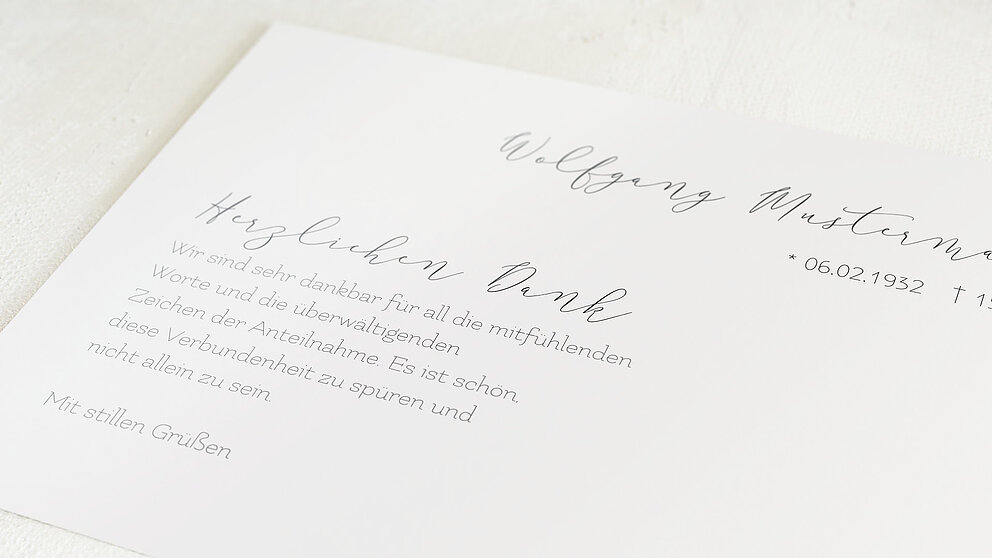 Wolfgang Musterma
* 06.02.1932 † 19
Herzlichen Dank
Wir sind sehr dankbar für all die mitfühlenden
Worte und die überwältigenden
Zeichen der Anteilnahme. Es ist schön,
diese Verbundenheit zu spüren und
nicht allein zu sein.
Mit stillen Grüßen